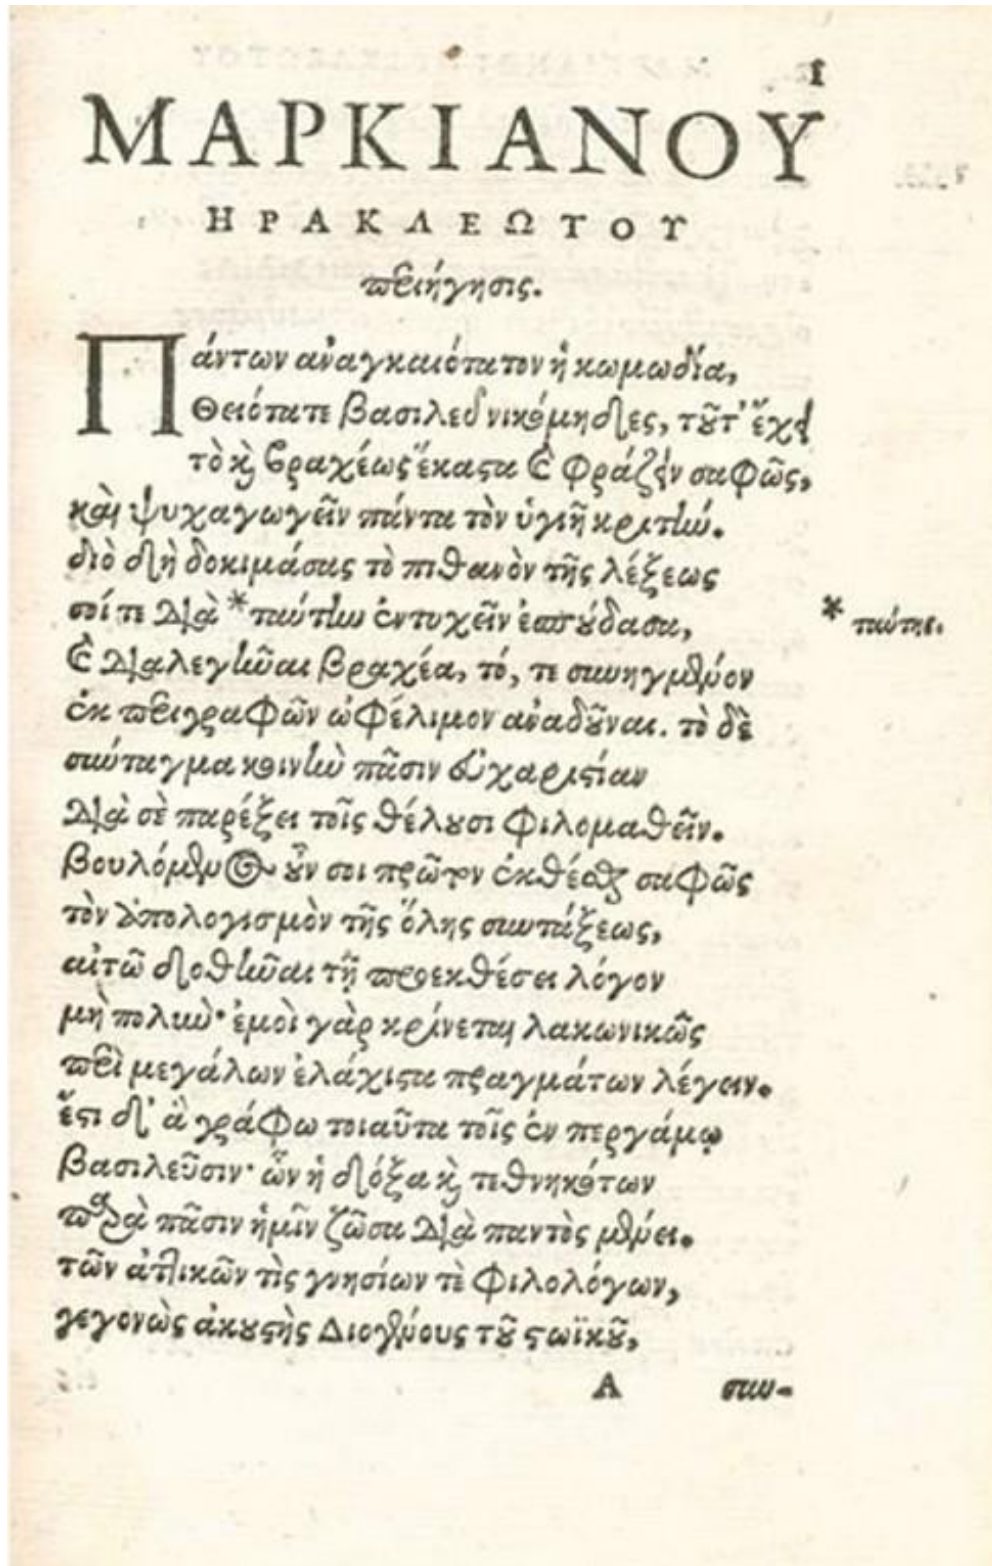 1
ΜΑΡΚΙΑΝΟΥ
ΗΡΑΚΛΕΩΤΟΥ
περιήγησις.
Πάντων ἀναγκαιότατον ἡ κωμωδία,
Θειότατε βασιλεῦ νικόμηδες, τοῦτ' ἔχει
τὸ καὶ βραχέως ἕκαστα καὶ φράζειν σαφῶς,
καὶ ψυχαγωγεῖν πάντα τὸν ὑγιῆ κριτήν.
διὸ δὴ δοκιμάσας τὸ πιθανὸν τῆς λέξεως
σοί τε διὰ *ταύτην ἐντυχεῖν ἐσπούδασα,
* ταύτης.
καὶ διαλεγῆναι βραχέα, τό, τε συνηγμένον
ἐκ περιγραφῶν ὠφέλιμον ἀναδοῦναι. τὸ δὲ
σύνταγμα κοινὴν πᾶσιν εὐχαριστίαν
διὰ σὲ παρέξει τοῖς θέλουσι φιλομαθεῖν.
βουλόμενος οὖν σοι πρῶτον ἐκθέσθαι σαφῶς
τὸν ἀπολογισμὸν τῆς ὅλης συντάξεως,
αἰτῶ δοθῆναι τῇ προεκθέσει λόγον
μὴ πολύν· ἐμοὶ γὰρ κρίνεται λακωνικῶς
περὶ μεγάλων ἐλάχιστα πραγμάτων λέγειν.
ἔστι δ' ἃ γράφω τοιαῦτα τοῖς ἐν περγάμῳ
βασιλεῦσιν· ὧν ἡ δόξα καὶ τεθνηκότων
παρὰ πᾶσιν ἡμῖν ζῶσα διὰ παντὸς μένει.
τῶν ἀττικῶν τὶς γνησίων τὲ φιλολόγων,
γεγονὼς ἀκουστὴς Διογένους τοῦ στωϊκοῦ,
Α συν-